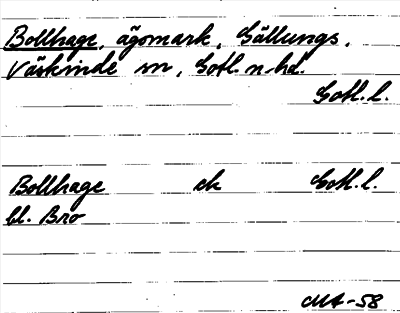 Bollhage, ägomark, Gällungs,
Väskinde sn, Gotl. n. hd.
Gotl. l.
Bollhage ek Gotl. l.
bl. Bro
MA-58